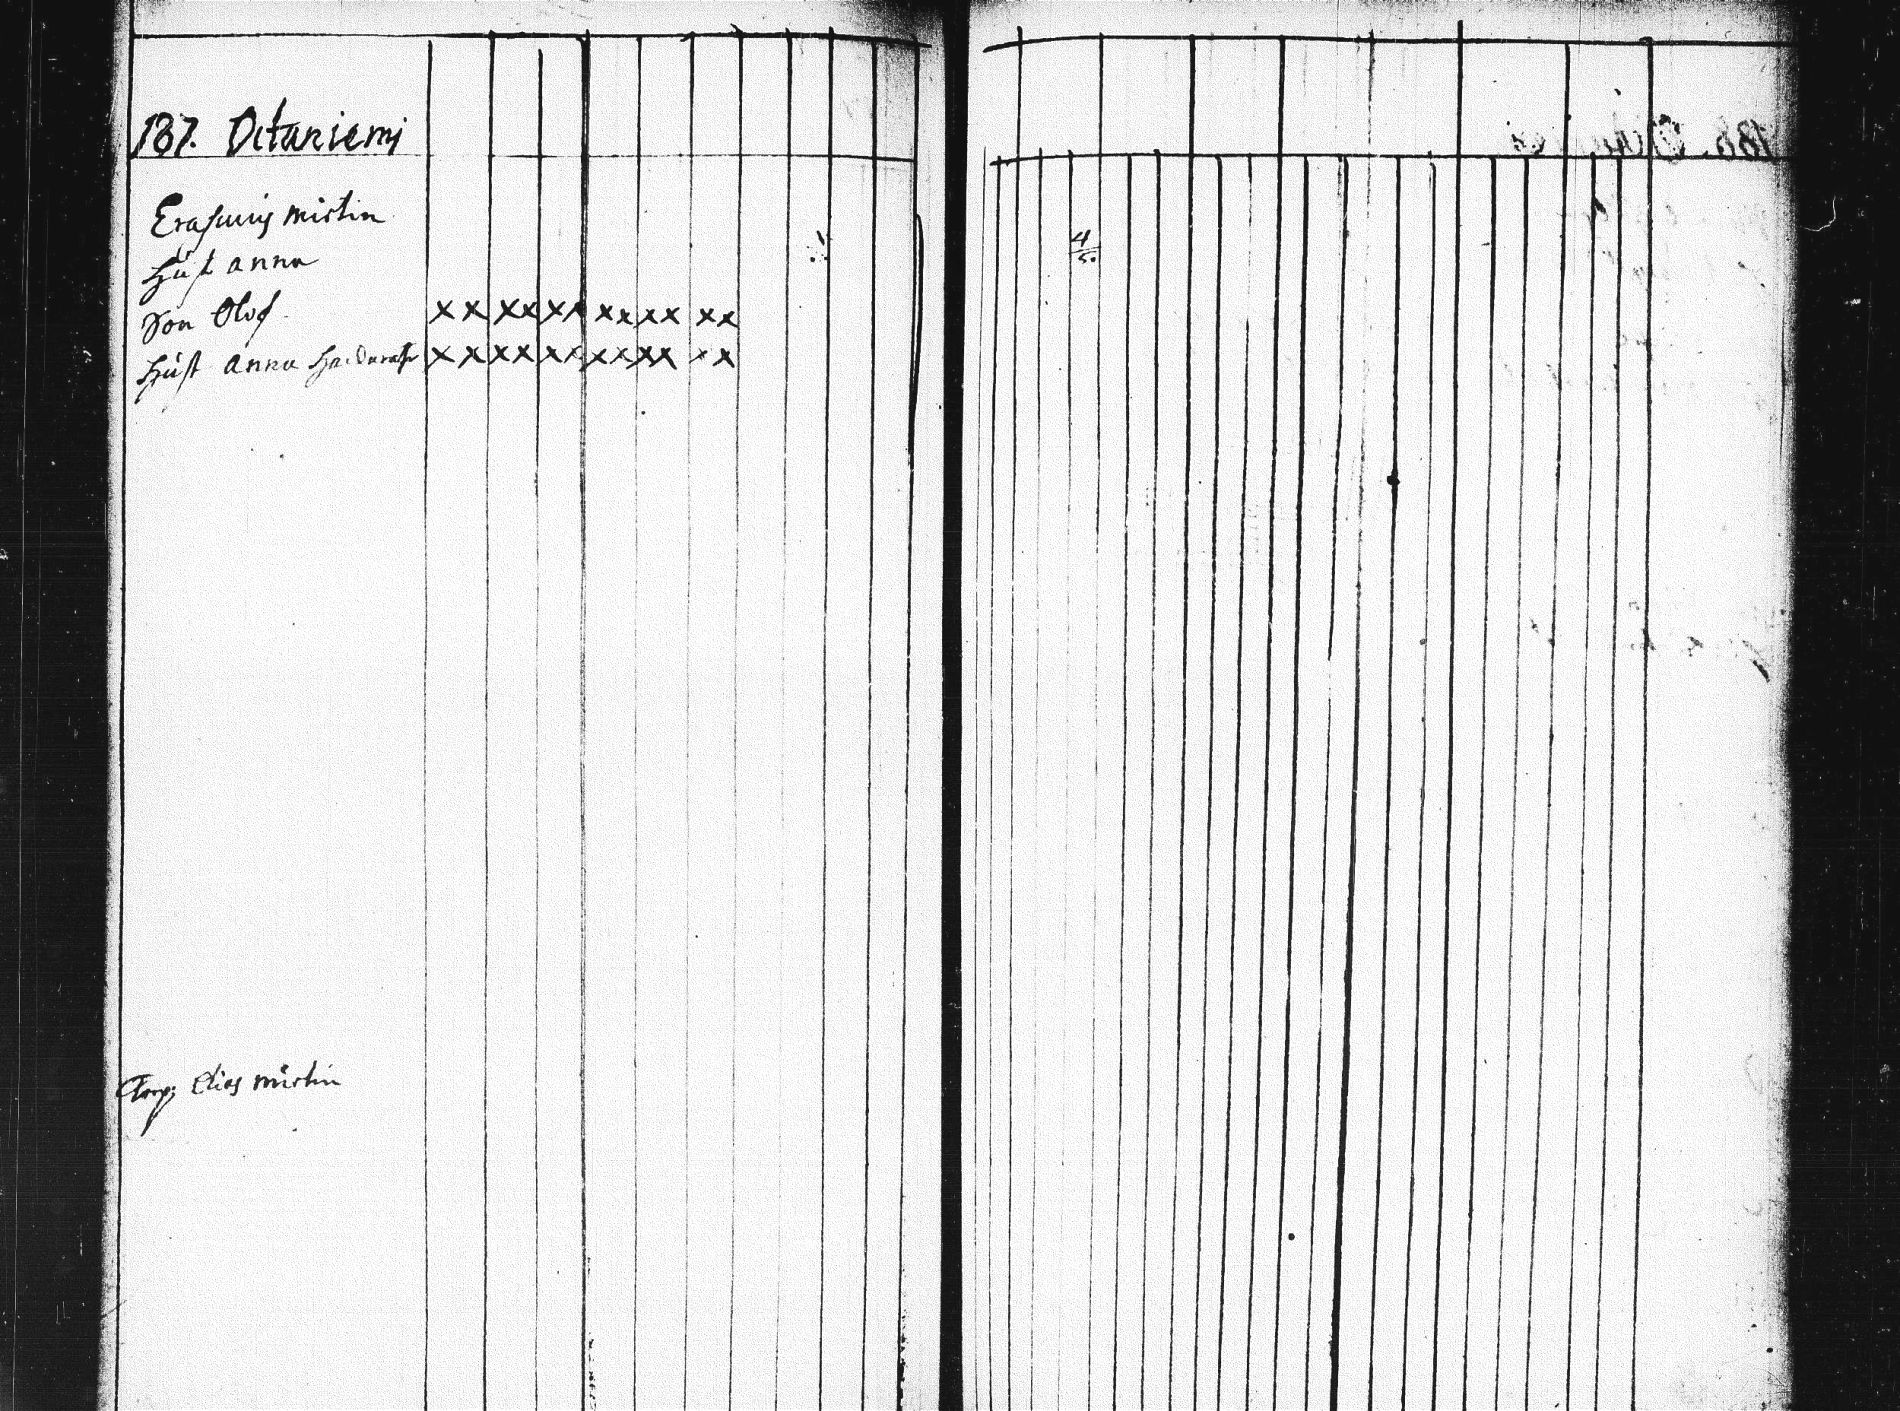 187. Octaniemi
Erasmus Mårtin
Hust Anna
4/5.
Son Olof x x x x x x x x x x x x
Hust Anna x x x x x x x x x x x x
Elias Mårtin